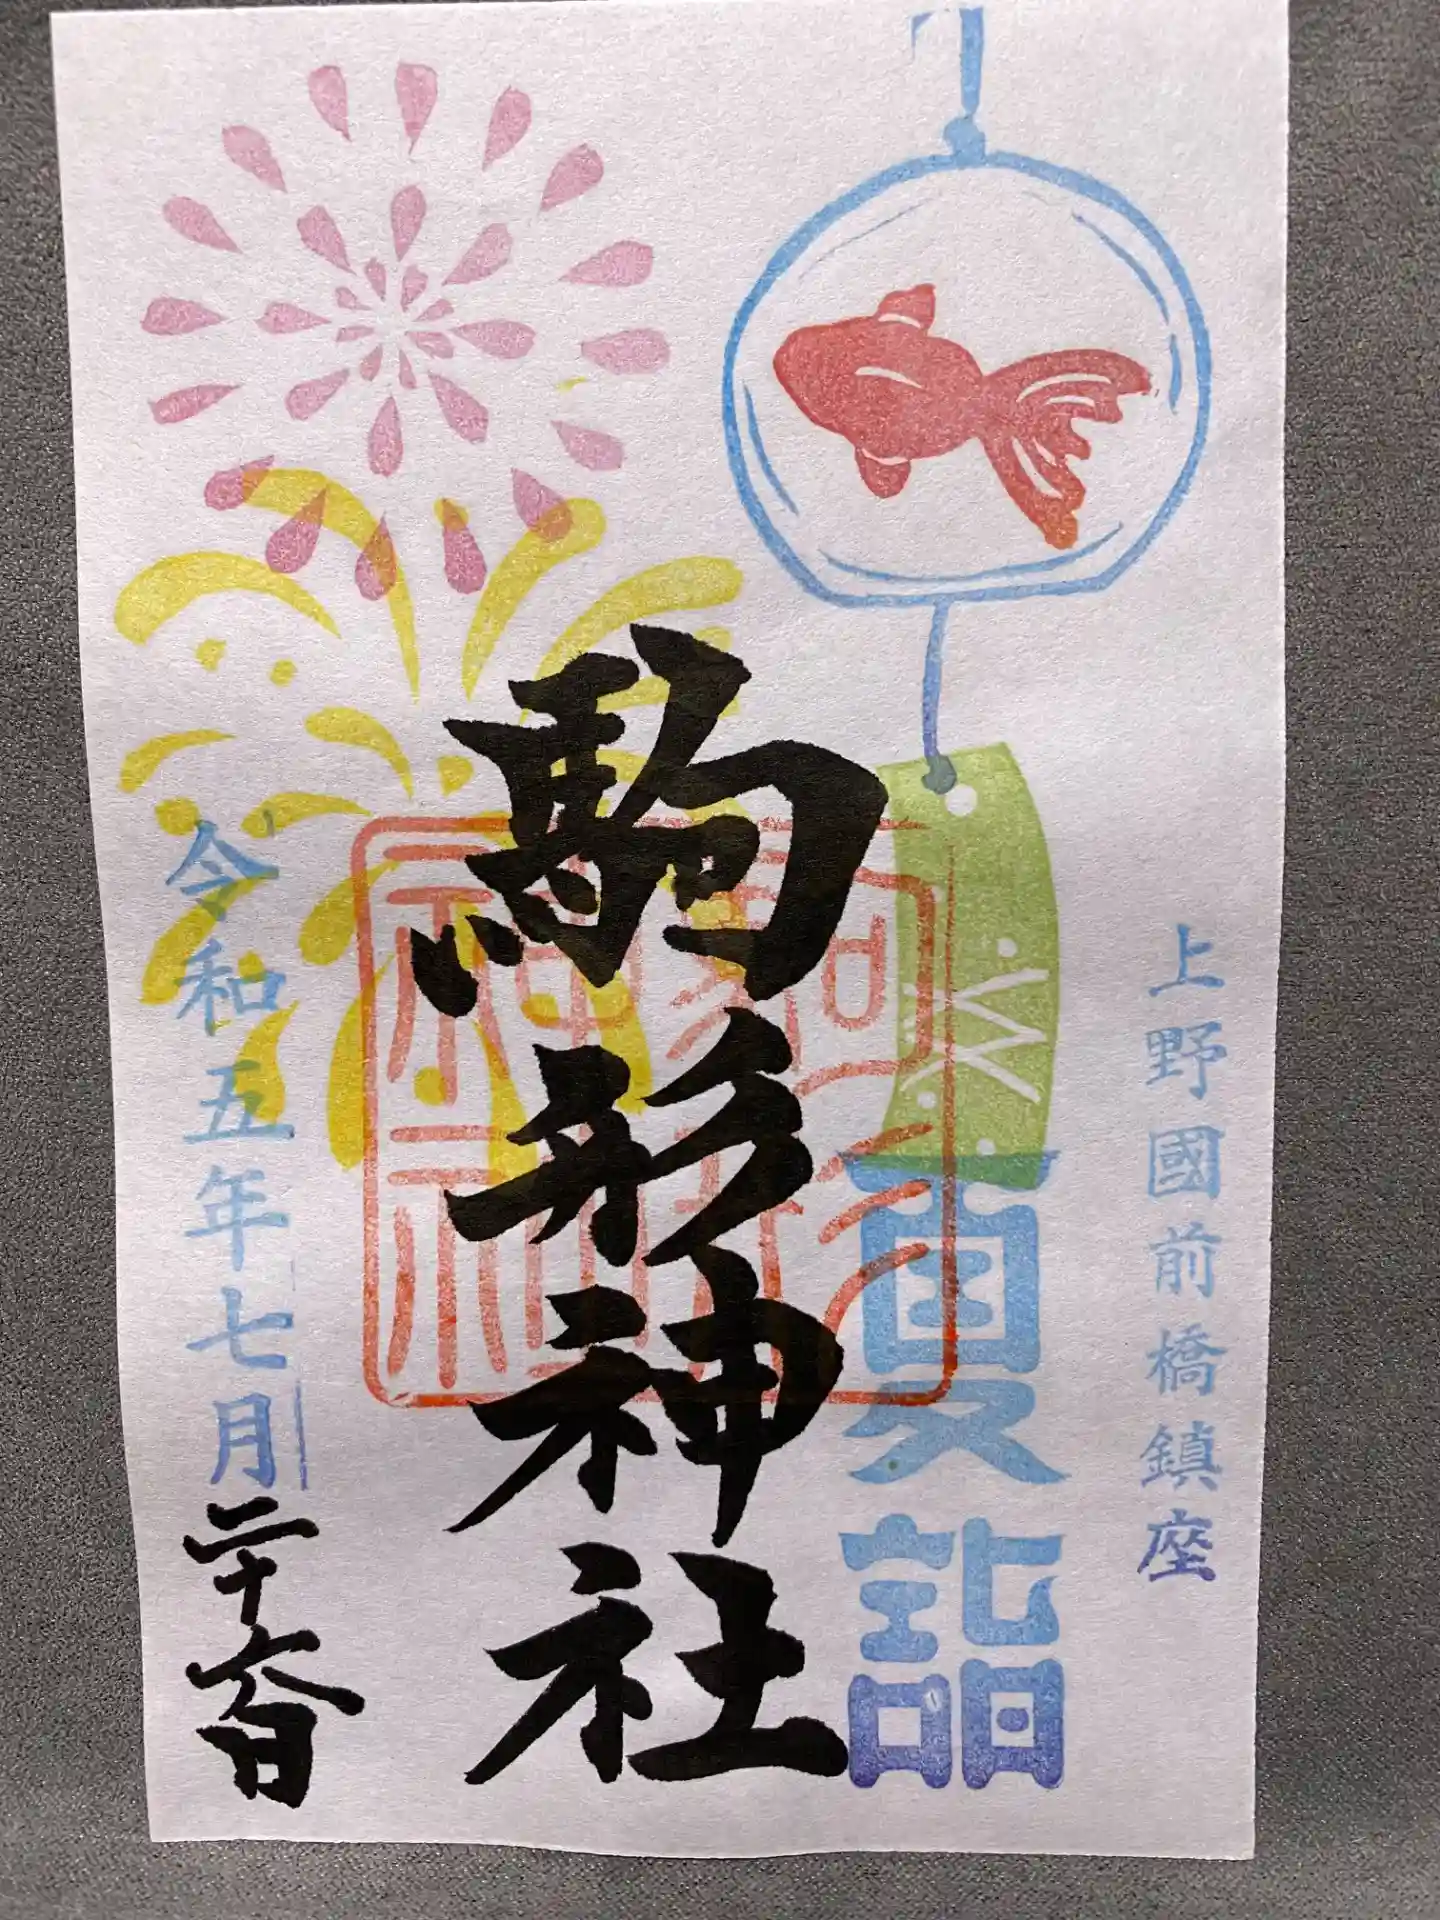 上野國前橋鎮座
夏詣
駒形神社
駒形神社
令和五年七月二十六日